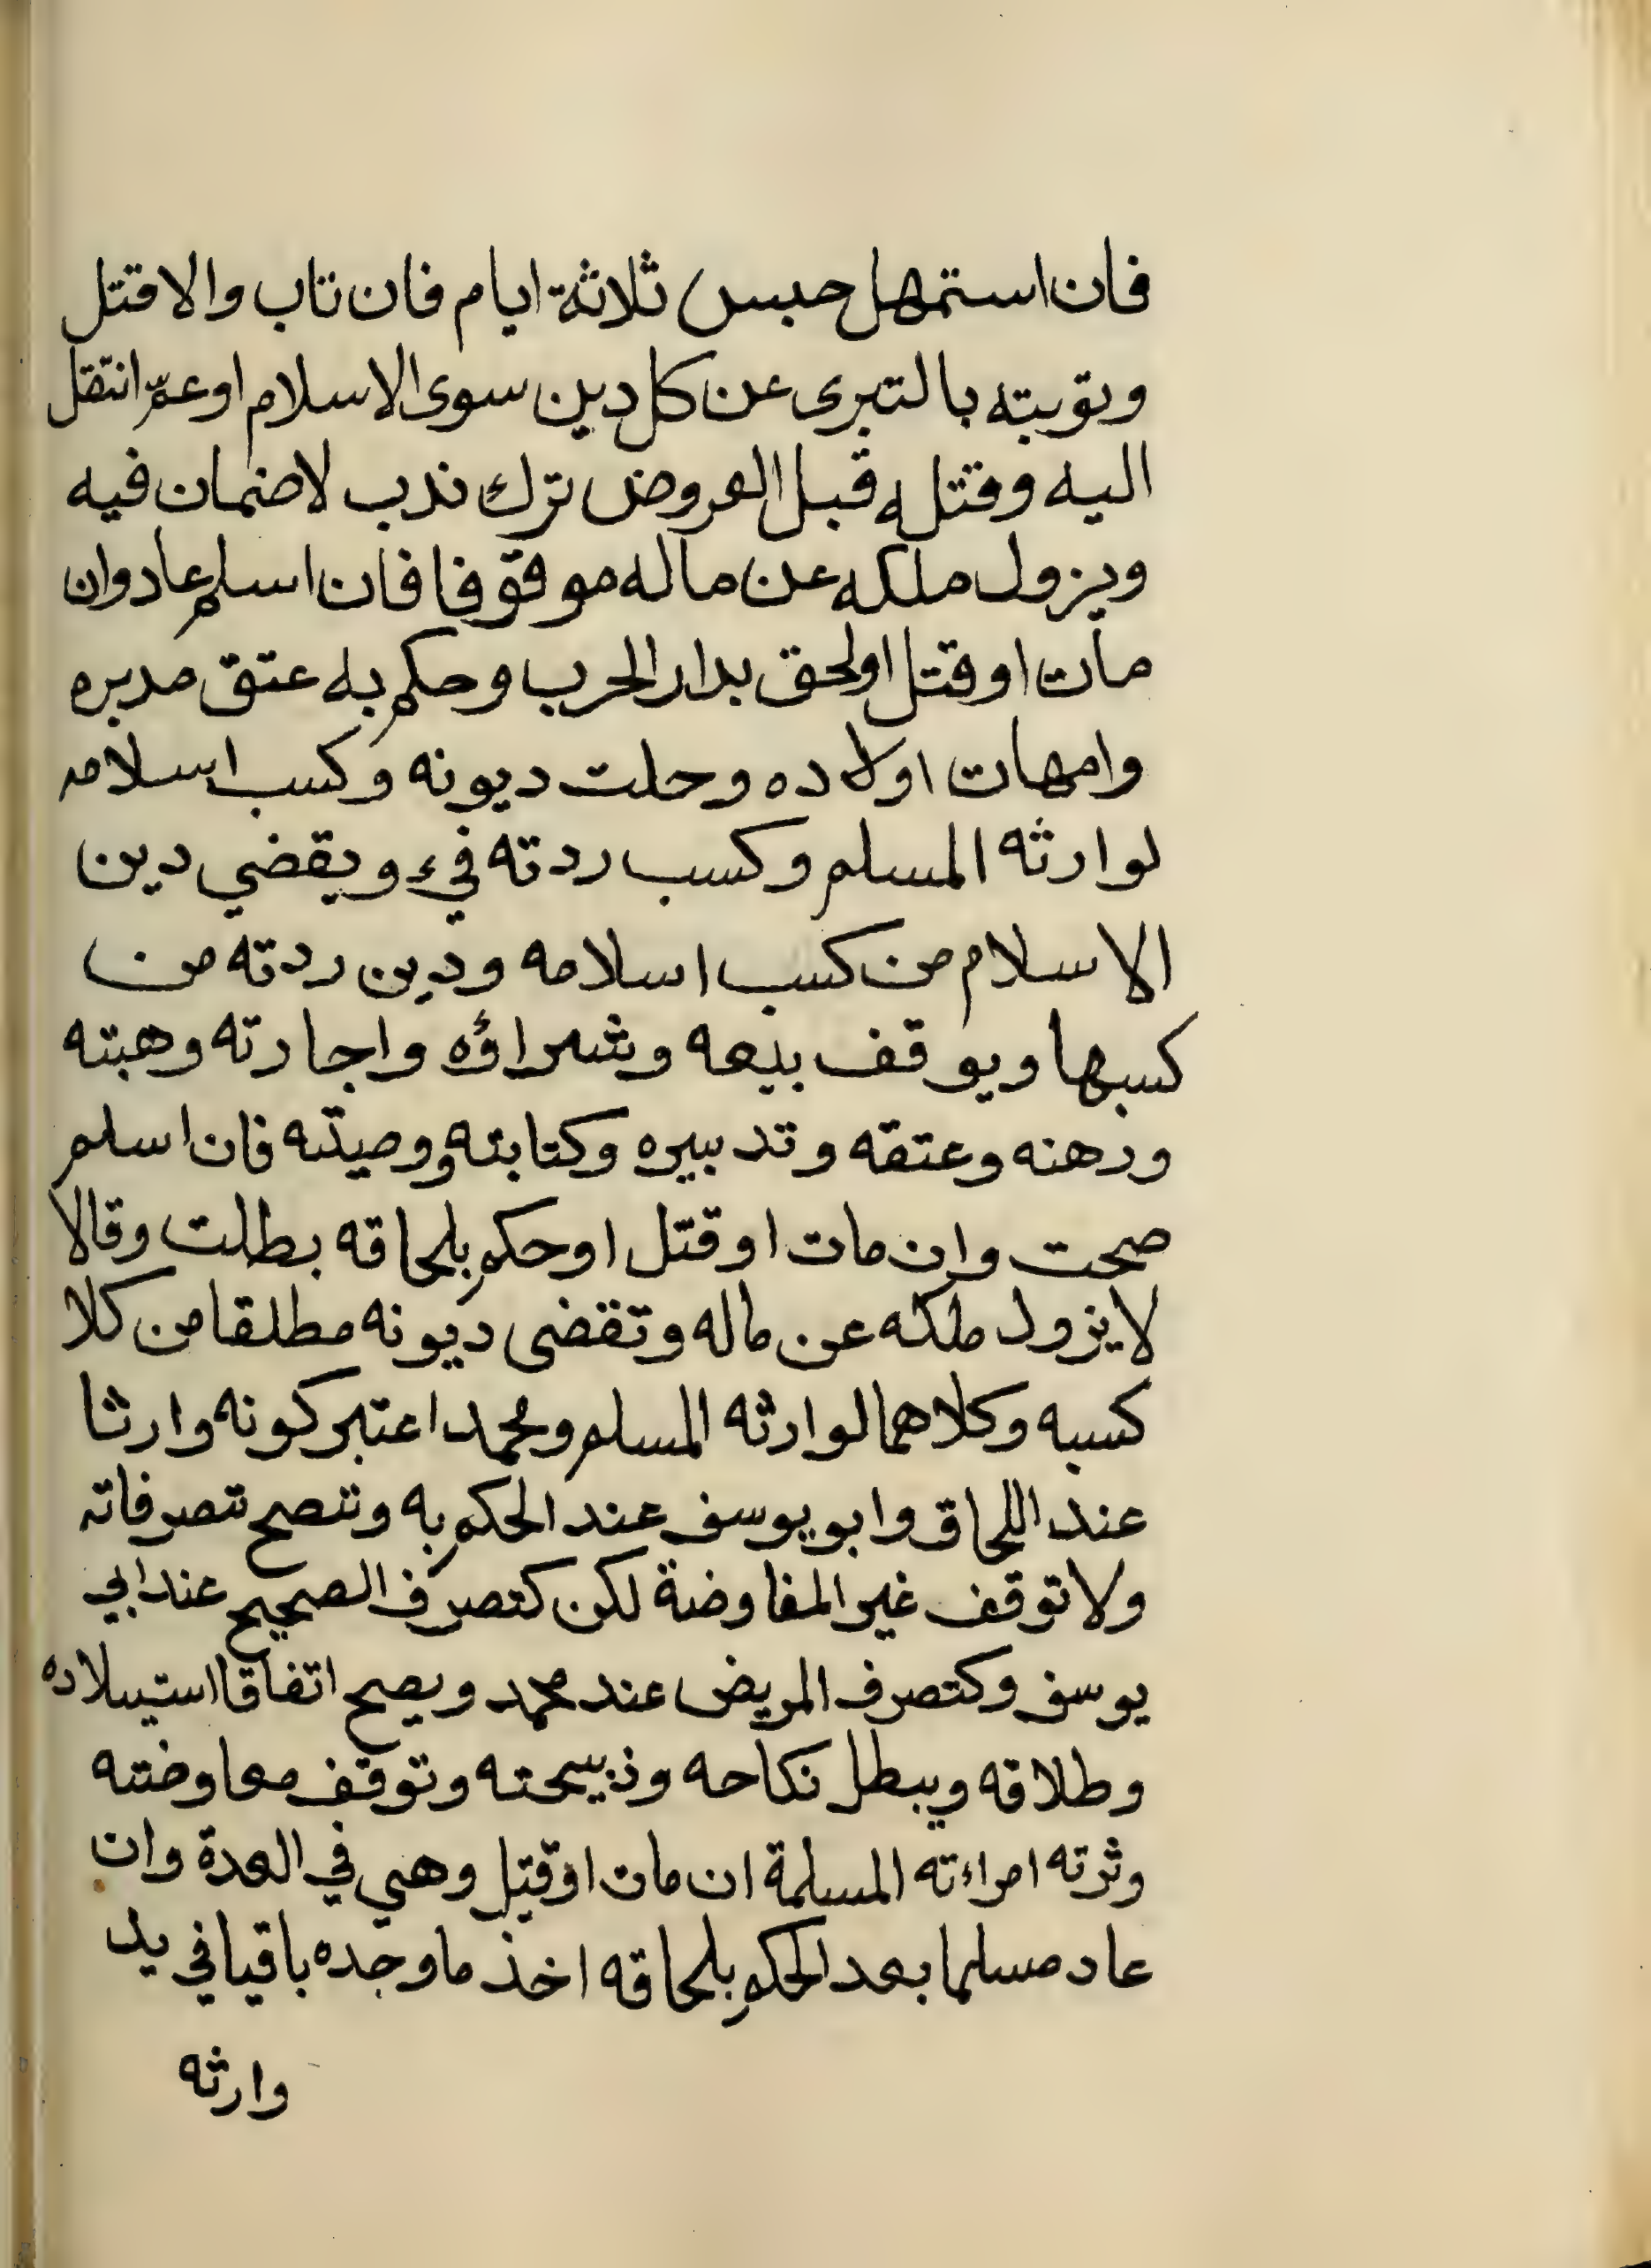 فان استمهل حبس ثلاثة ايام فان تاب والا قتل
وتوبته بالتبرى عن كل دين سوى الاسلام او عمّا انتقل
اليه وقتله قبل العروض ترك ندب لا ضمان فيه
ويزول ملكه عن ماله موقوفا فان اسلم عاد وان
مات او قتل او لحق بدار الحرب وحكم به عتق مدبره
وامهات اولاده وحلت ديونه وكسب اسلامه
لوارثه المسلم وكسب ردته فيء ويقضي دين
الاسلام من كسب اسلامه ودين ردته من
كسبها ويوقف بيعه وشراؤه واجارته وهبته
ورهنه وعتقه وتدبيره وكتابته ووصيته فان اسلم
صحت وان مات او قتل او حكم بلحاقه بطلت وقالا
لا يزول ملكه عن ماله وتقضى ديونه مطلقا من كلا
كسبه وكلاهما لوارثه المسلم ومحمد اعتبر كونه وارثا
عند اللحاق وابو يوسف عند الحكم به وتصح تصرفاته
ولا توقف غير المفاوضة لكن كتصرف الصحيح عند ابي
يوسف وكتصرف المريض عند محمد ويصح اتفاقا استيلاده
وطلاقه ويبطل نكاحه وذبيحته وتوقف معاوضته
وثرته امراءته المسلمة ان مات او قتل وهي في العدة وان
عاد مسلما بعد الحكم بلحاقه اخذ ما وجده باقيا في يد
وارثه